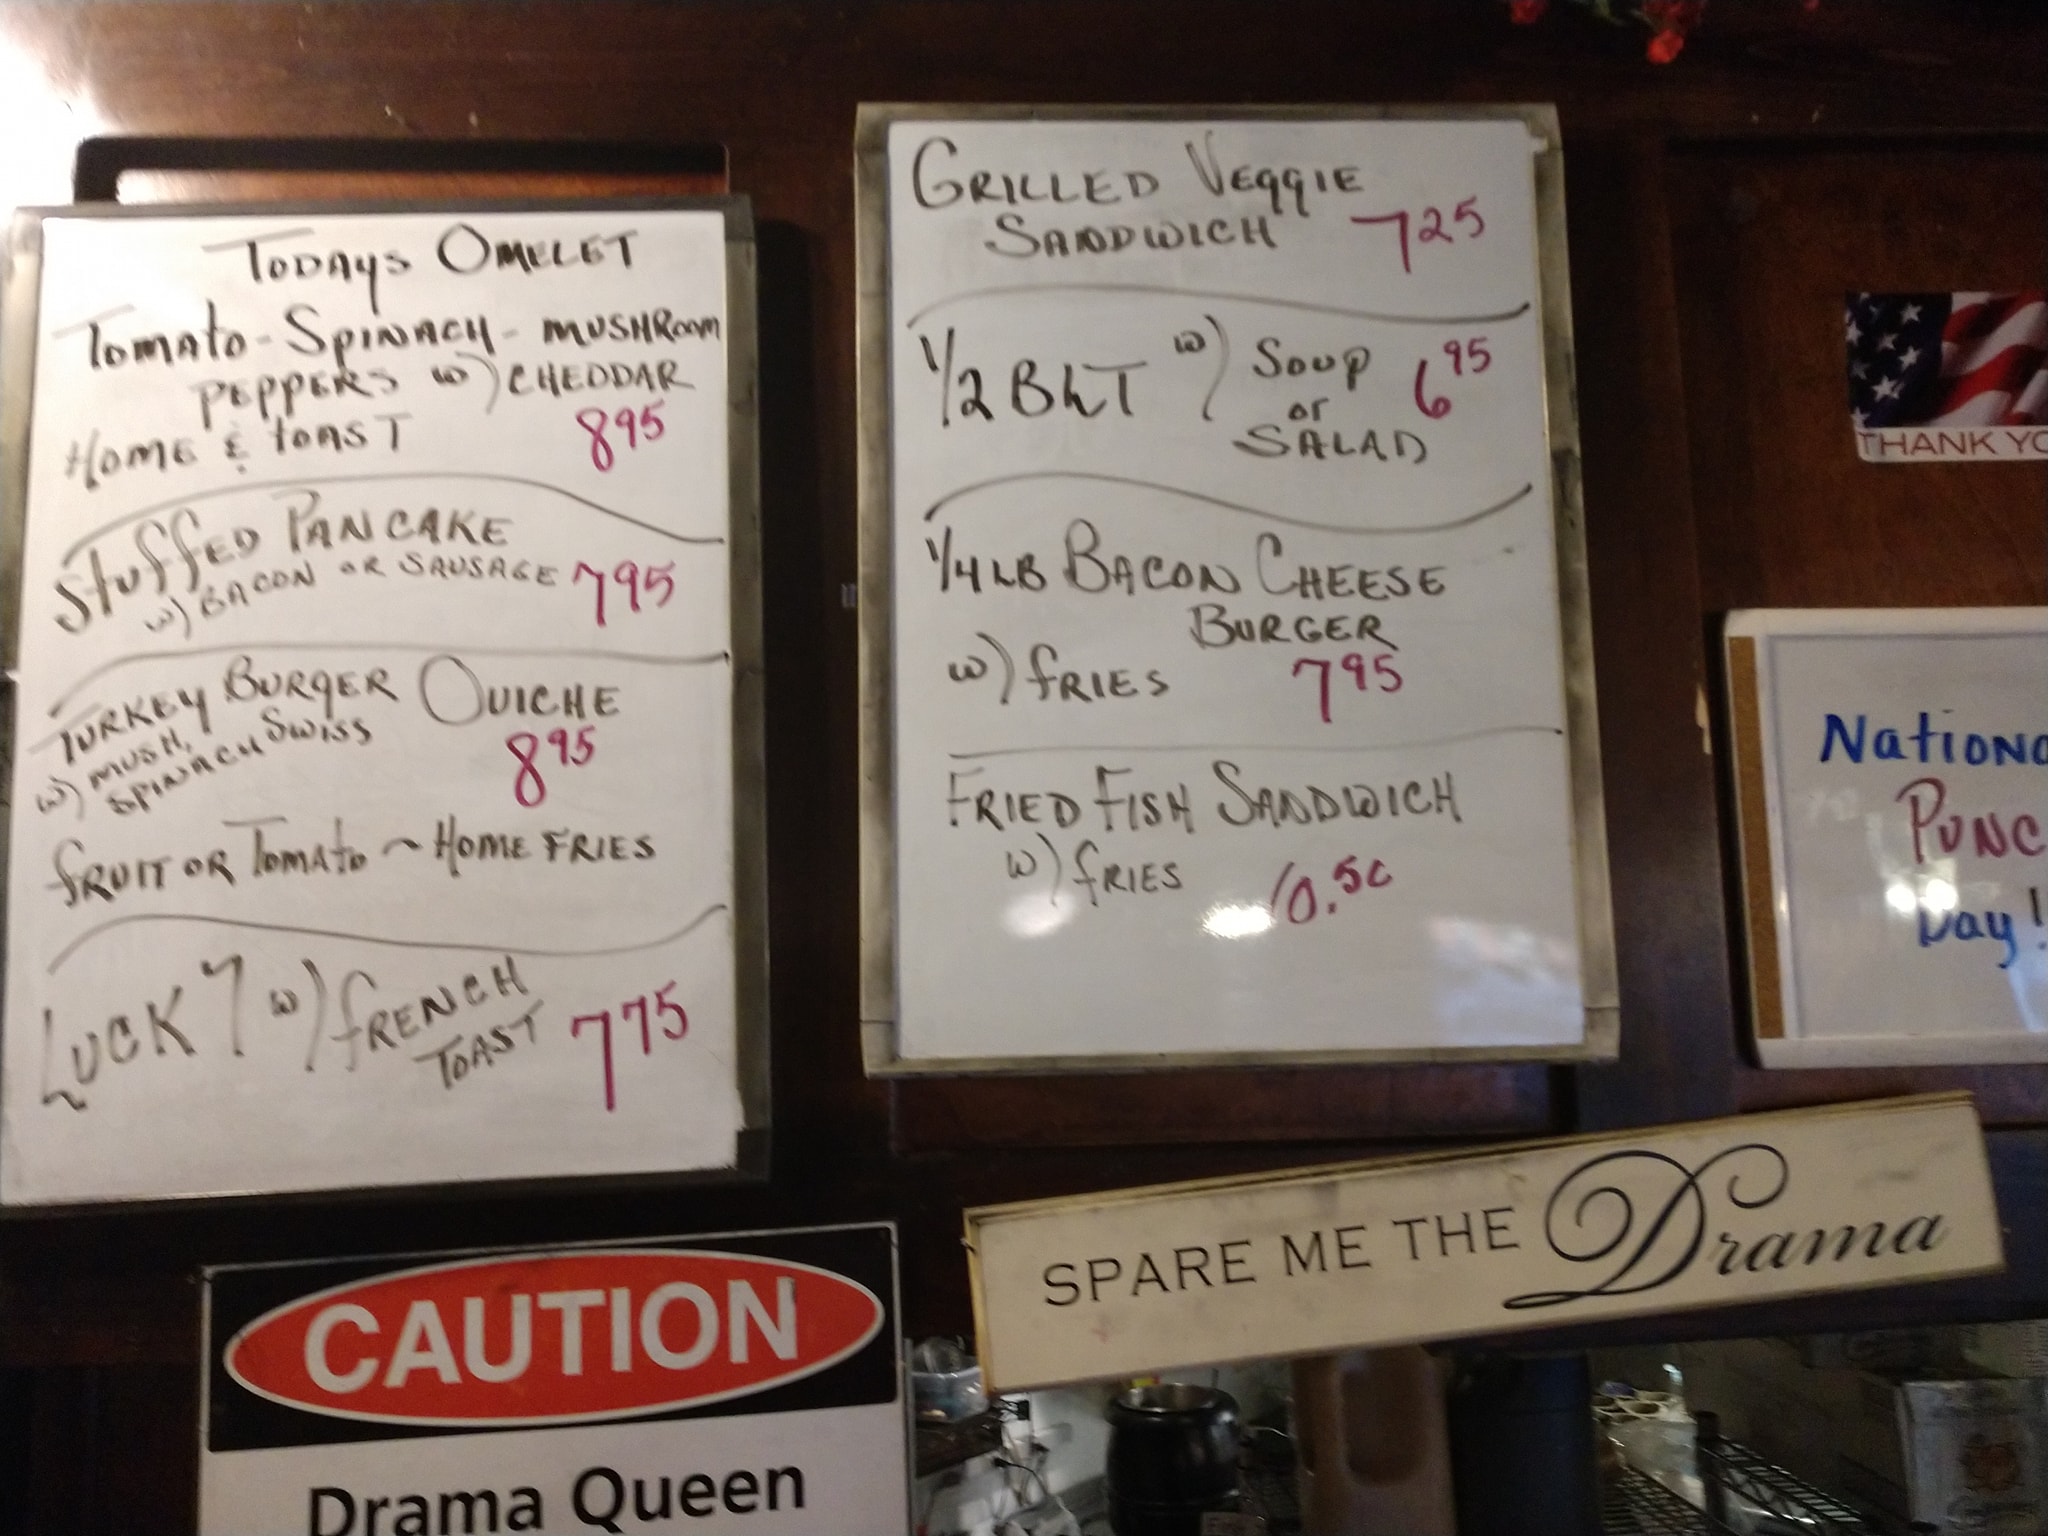 TODAYS OMELET
TOMATO - SPINACH - MUSHROOM
PEPPERS W) CHEDDAR
HOME & TOAST 8 95
STUFFED PANCAKE
W) BACON OR SAUSAGE 7 95
TURKEY BURGER QUICHE
W) MUSH, SWISS
SPINACH 8 95
FRUIT OR TOMATO ~ HOME FRIES
LUCK 7 W) FRENCH
TOAST 7 75
GRILLED VEGGIE
SANDWICH 7 25
1/2 BLT W) SOUP 6 95
or
SALAD
1/4 LB BACON CHEESE
BURGER
W) FRIES 7 95
FRIED FISH SANDWICH
W) FRIES 10.50
THANK YO
Nationa
PUNC
Day!
SPARE ME THE Drama
CAUTION
Drama Queen